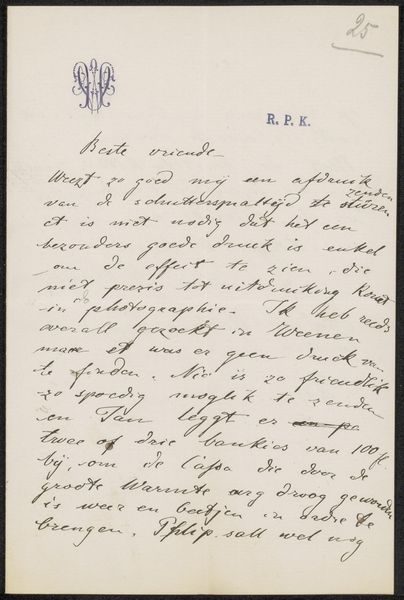 25
R. P. K.
Beste vriende
Weezt zo goed mij een afdruik
zenden
van de schuttersmaltijd te sturen
et is niet nodig dat het een
bezonders goede druck is enkel
om de effect te zien, die
niet prezis tot uitdruiking komt
in photographie. Ik heb reeds
overall gezockt in Weenen
maar et was er geen druck van
te finden. Nie is zo friendlik
zo spoedig moglik te zenden
en Tan leggt er
twee of drie bankjes van 100 fl.
bij, om de Cassa die door de
groote Warmte erg droog geworden
is weer en beetjen in ordre te
brengen. Phlip sall wel nog